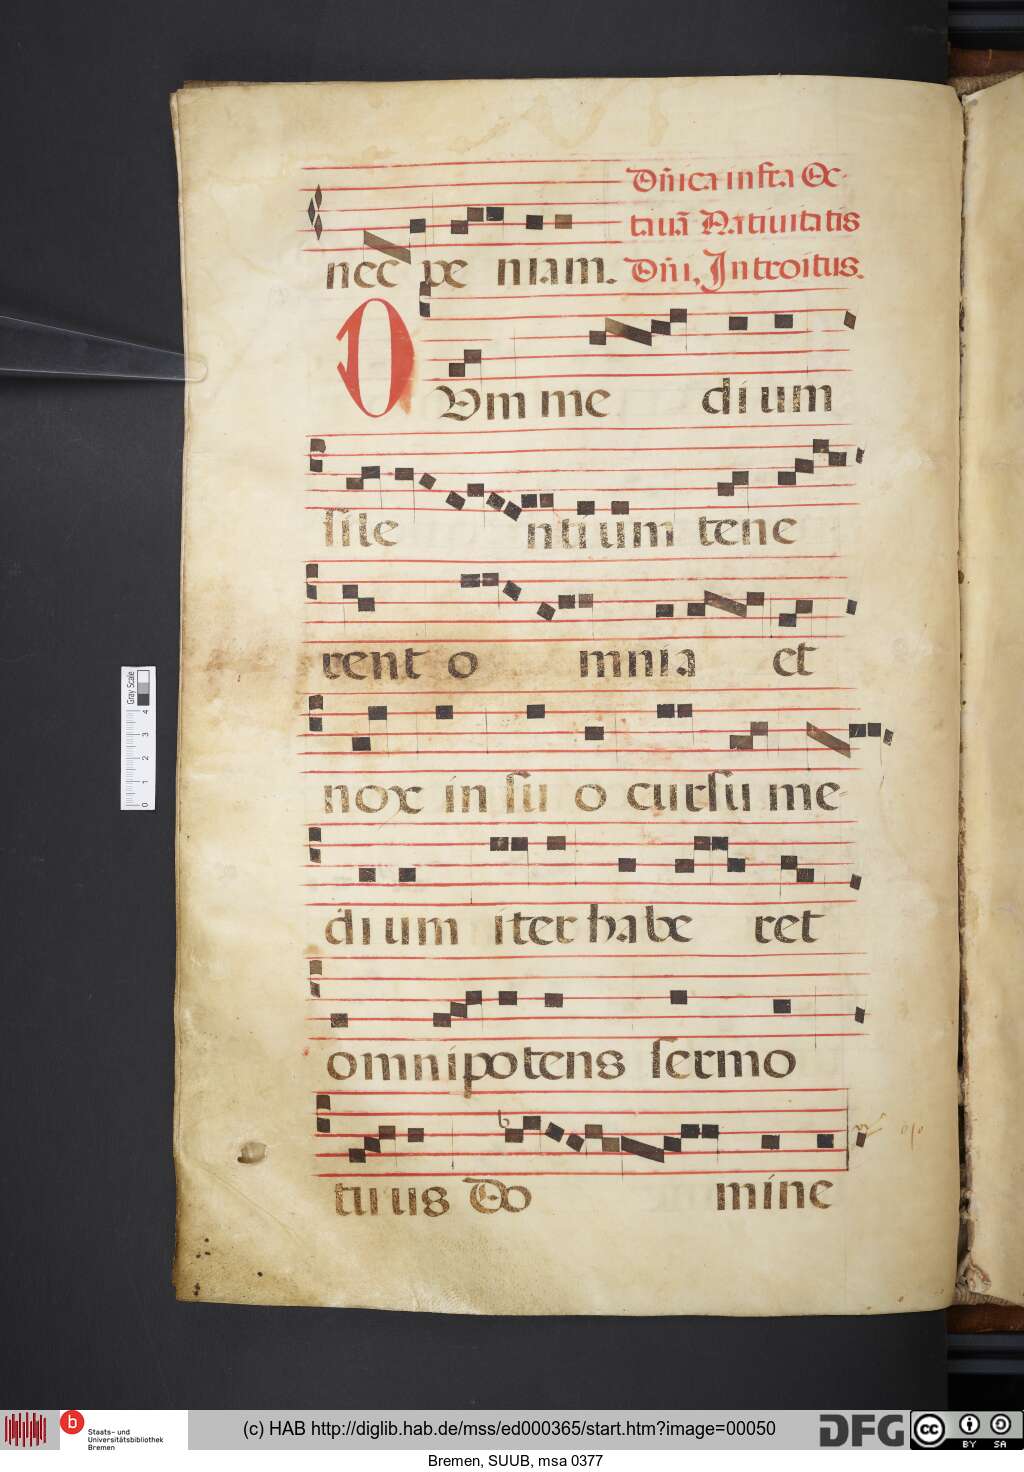 Dñica infra Oc-
tauã Natiuitatis
nec pe niam. Dñi, Introitus.
DVm me dium
sile ntium tene
rent o mnia et
nox in su o cursu me-
dium iter habe ret
omnipotens sermo
tuus Do mine
Gray Scale
4 3 2 1 0
b Staats- und
Universitätsbibliothek
Bremen
(c) HAB http://diglib.hab.de/mss/ed000365/start.htm?image=00050
DFG
cc BY SA
Bremen, SUUB, msa 0377